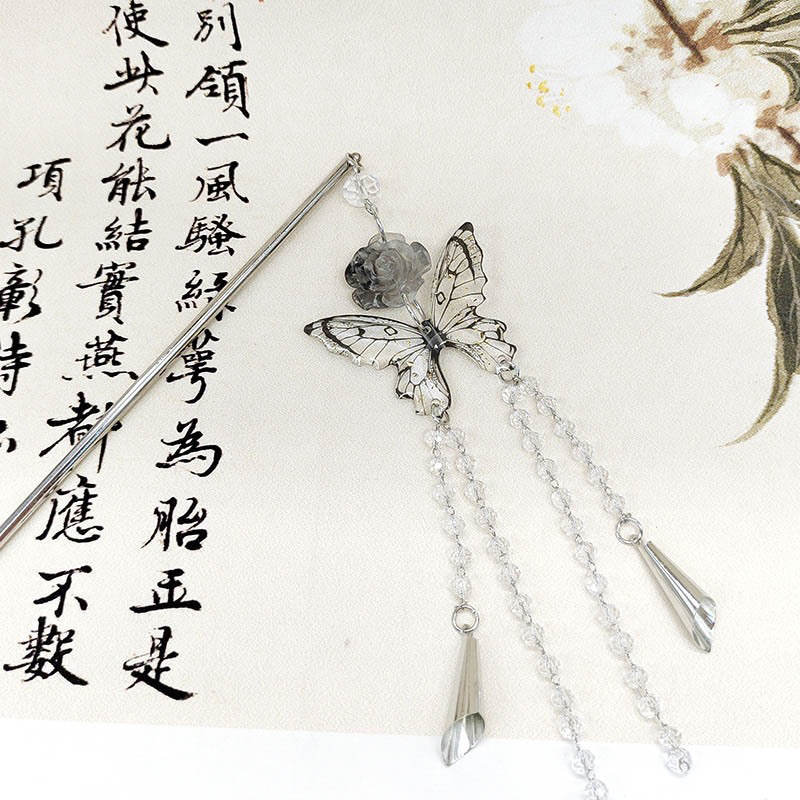 別領一風騷綠萼為胎正是
使此花能結實燕都應不數
項孔彰